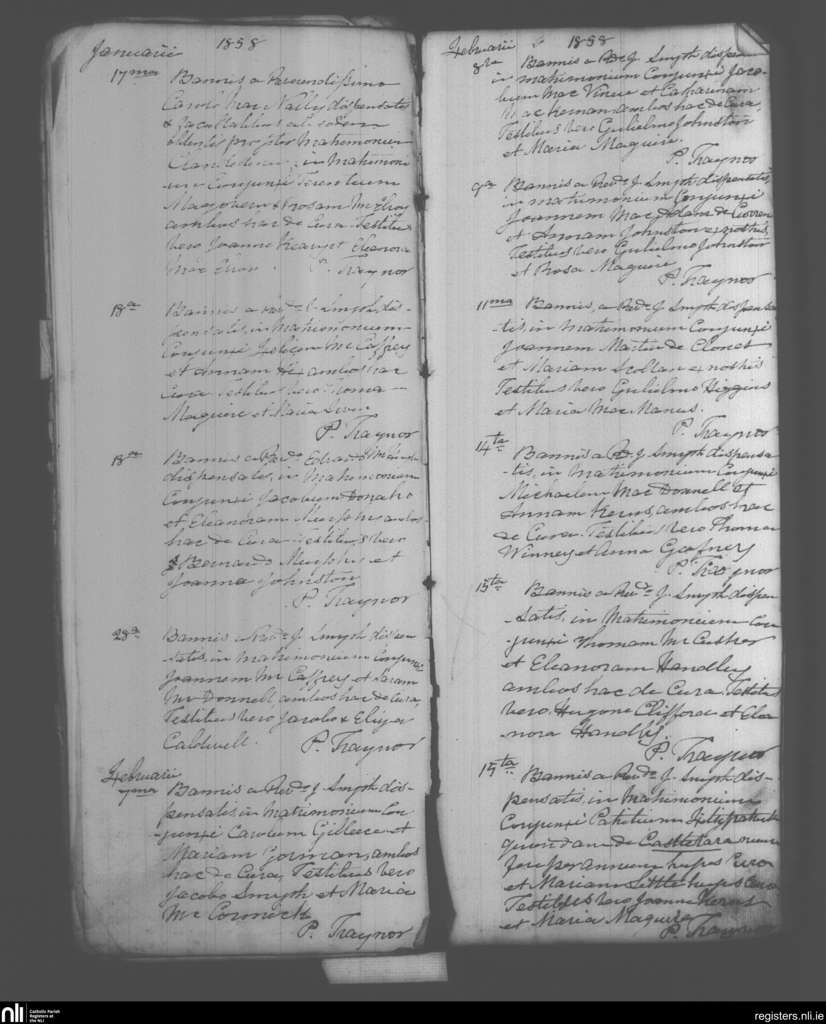 Januarii 1858
17ma Bannis a Reverendissimo
Carolo Mac Nally dispensatis
in Matrimoni
um Conjunxi Terentium
ambos hac de Cura Testibus
vero Joanne et Eleonora
P. Traynor
18a Bannis a Revdo J. Smyth dis-
pensatis, in Matrimonium
Conjunxi Felicem McCaffrey
et Annam ambos hac
Cura Testibus vero Thoma
Maguire et Maria
P. Traynor
18a Bannis a Revdo
dispensatis, in Matrimonium
Conjunxi Jacobum Donaho
et Eleanoram Murphy ambos
hac de Cura Testibus vero
Bernardo Murphy et
Joanna Johnston
P. Traynor
28a Bannis a Revdo J. Smyth dispen
satis, in Matrimonium Conjunxi
Joannem Mc Caffrey et Saram
Mc Donnell, ambos hac de Cura,
Testibus vero Jacobo & Eliza
Caldwell. P. Traynor
Februarii
7ma Bannis a Revdo J. Smyth dis-
pensatis, in Matrimonium Con
-junxi Carolum Gilleece et
Mariam Gorman, ambos
hac de Cura, Testibus vero
Jacobo Smyth et Maria
Mc Cormick
P. Traynor
Februarii 1858
8va Bannis a Rdo J. Smyth dispen
in matrimonium Conjunxi Jaco-
bum Mac Vinue et Catharinam
Mac Kernan ambos hac de Cura,
Testibus vero Gulielmo Johnston
et Maria Maguire.
P. Traynor
9a Bannis a Revdo J. Smyth dispensatis,
in matrimonium Conjunxi
Joannem Mac Adam de
et Annam Johnston ex nostris,
Testibus vero Gulielmo Johnston
et Rosa Maguire
P. Traynor
11ma Bannis, a Rdo J. Smyth dispensa
-tis, in matrimonium Conjunxi
Joannem Martin de Clones
et Mariam Scollan ex nostris
Testibus vero Gulielmo Higgins
et Maria Mac Manus.
P. Traynor
14ta Bannis a Rdo J. Smyth dispensa
-tis, in Matrimonium Conjunxi
Michaelem Mac Donnell et
Annam Kerns, ambos hac
de Cura. Testibus vero Thoma
Winney et Anna Gafney
P. Traynor
15ta Bannis a Revdo J. Smyth dispen
-satis, in Matrimonium Con
junxi Thomam Mc Cusker
et Eleanoram Handley
ambos hac de Cura Testibus
vero Hugone Clifford et Elea
nora Handly.
P. Traynor
15ta Bannis a Revdo J. Smyth dis-
pensatis, in Matrimonium
Conjunxi Patritium Fitzpatrick
quondam de Castletara nunc
fore per annum hujus Cura
et Mariam Little hujus Cura
Testibus vero Joanne Kerns
et Maria Maguire
P. Traynor
nli Catholic Parish
Registers at
the NLI
registers.nli.ie